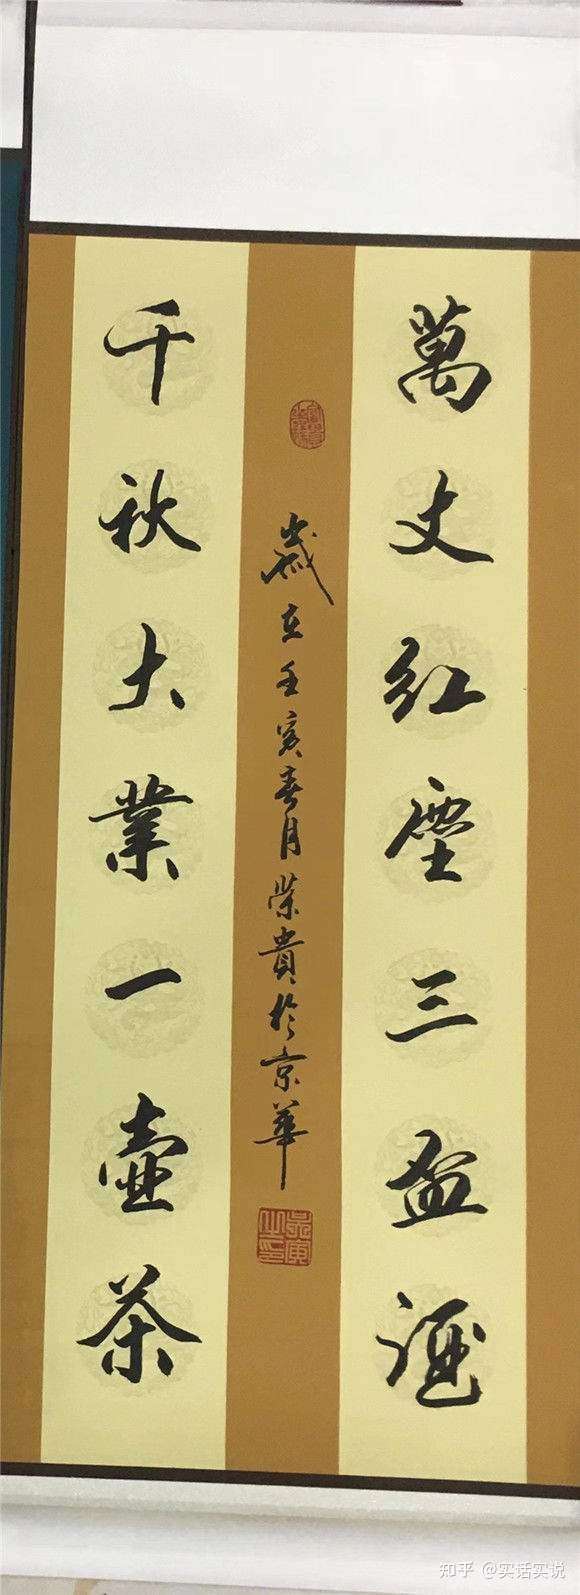 萬丈紅塵三盃酒
歲在壬寅春月榮貴於京華
千秋大業一壺茶
知乎 @实话实说